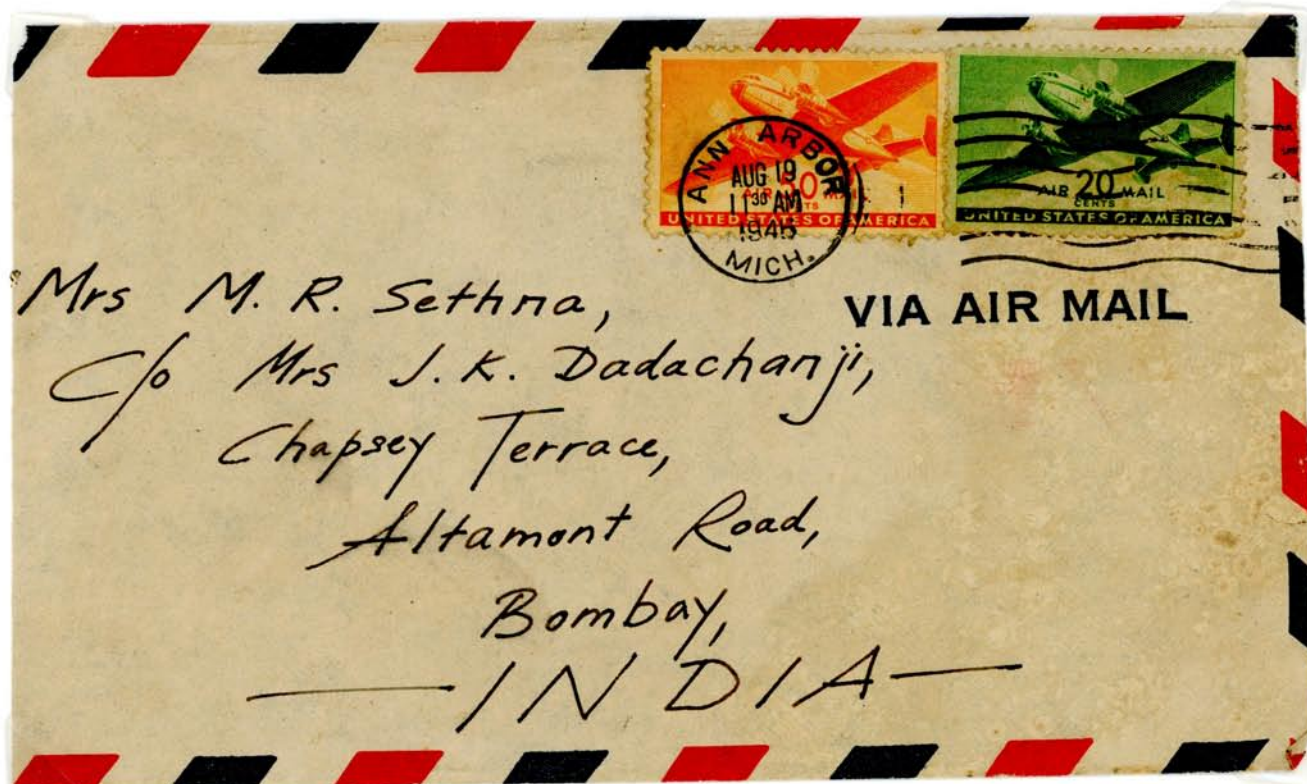 ANN ARBOR
AUG 19
11 30 AM
MICH.
AIR 20 MAIL
CENTS
UNITED STATES OF AMERICA
UNITED STATES OF AMERICA
VIA AIR MAIL
Mrs M. R. Sethna,
C/o Mrs J. K. Dadachanji,
Chapsey Terrace,
Altamont Road,
Bombay,
INDIA